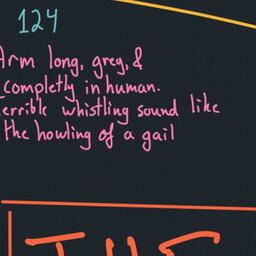 124
Arm long, greg, &
completly in human.
errible whistling sound like
the howling of a gail